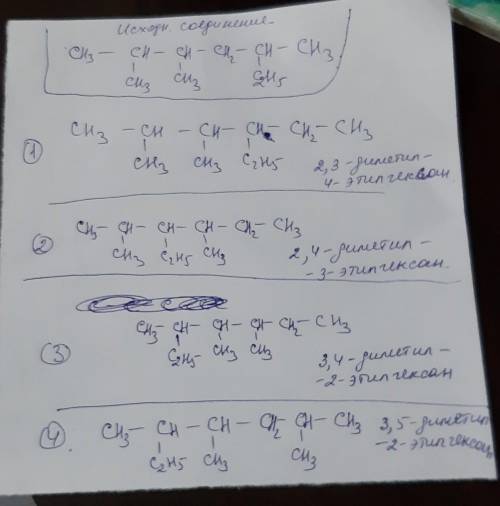 Исходн. соединение
CH₃ — CH — CH — CH₂ — CH — CH₃
CH₃ CH₃ C₂H₅
① CH₃ — CH — CH — CH — CH₂ — CH₃
CH₃ CH₃ C₂H₅ 2,3-диметил-
4-этилгексан.
② CH₃ — CH — CH — CH — CH₂ — CH₃
CH₃ C₂H₅ CH₃ 2,4-диметил-
-3-этилгексан.
③ CH₃ — CH — CH — CH — CH₂ — CH₃
C₂H₅ CH₃ CH₃ 3,4-диметил-
-2-этилгексан
④ CH₃ — CH — CH — CH₂ — CH — CH₃ 3,5-диметил-
C₂H₅ CH₃ CH₃ -2-этилгексан